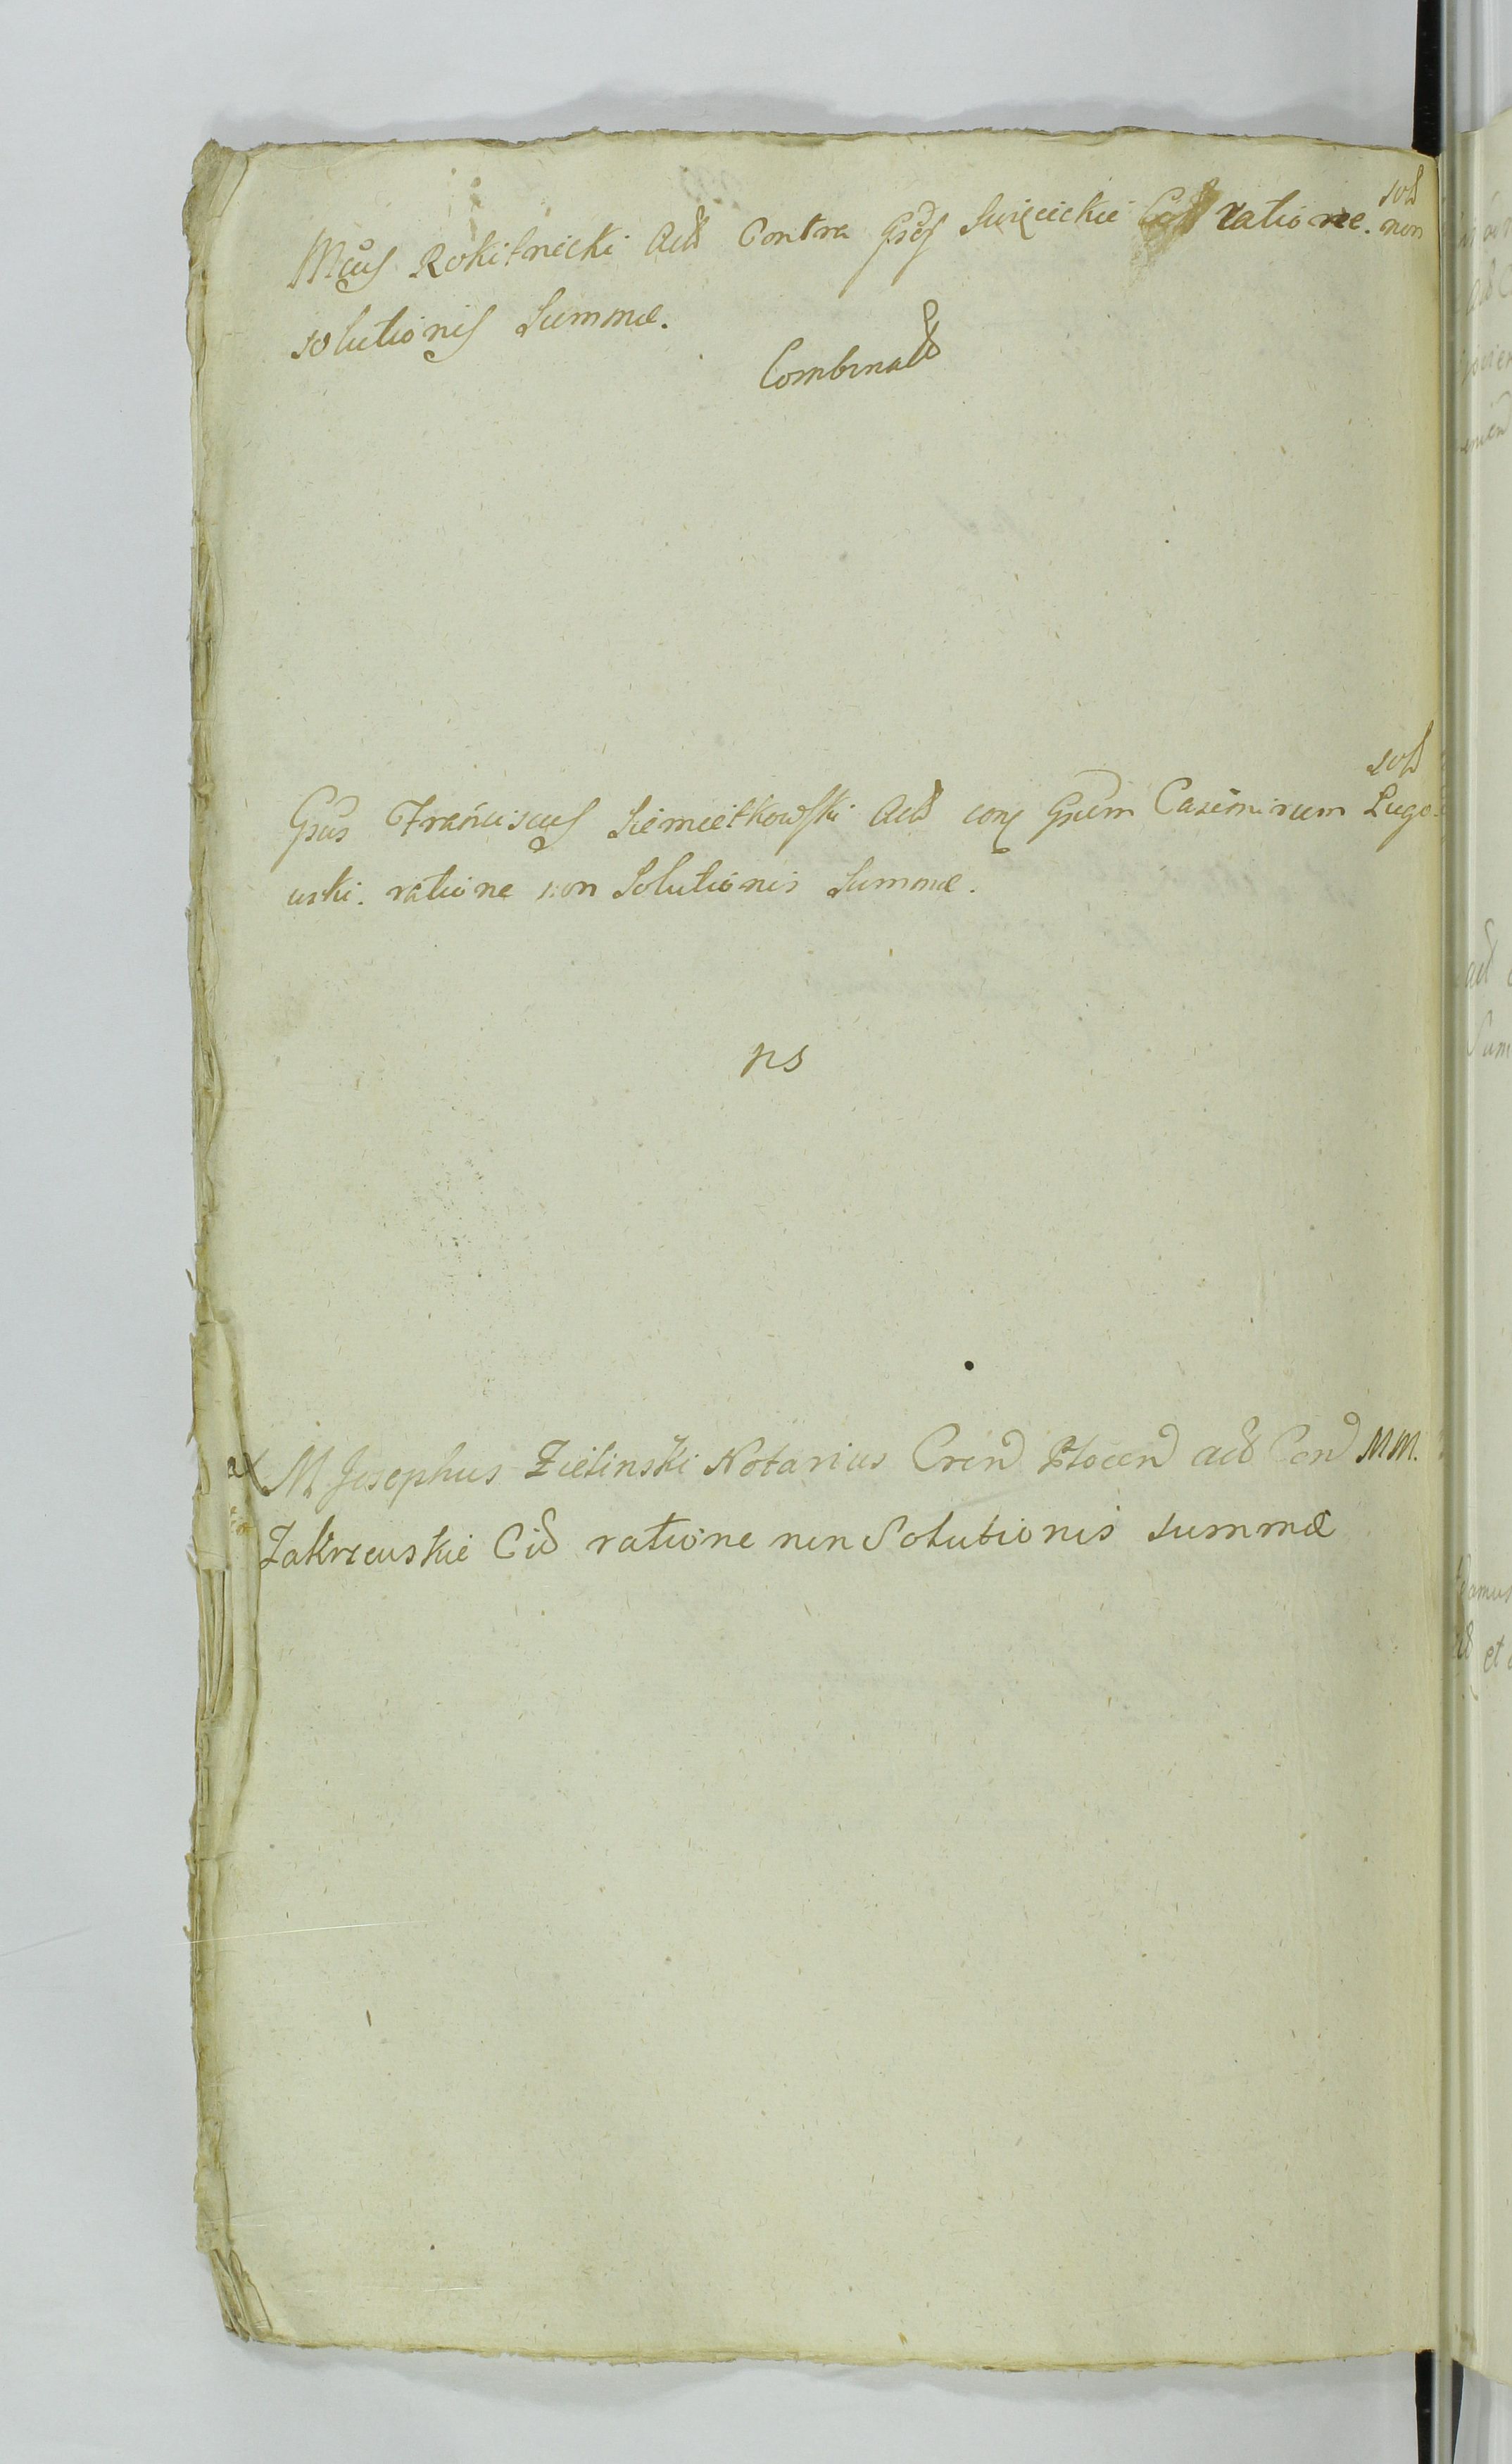 sol
Mcus Rokitnicki Act Contra Gsos Swięcickie Citt ratione. non
solutionis Summæ.
Combinatt
sol
Gsus Franciscus Siemiętkowski Act con Gsum Casimirum Lugo-
wski. ratione non Solutionis Summæ.
ns
M Josephus Zielinski Notarius Cren Plocen act Con MM.
Zakrzewskie Cit ratione non Solutionis summæ